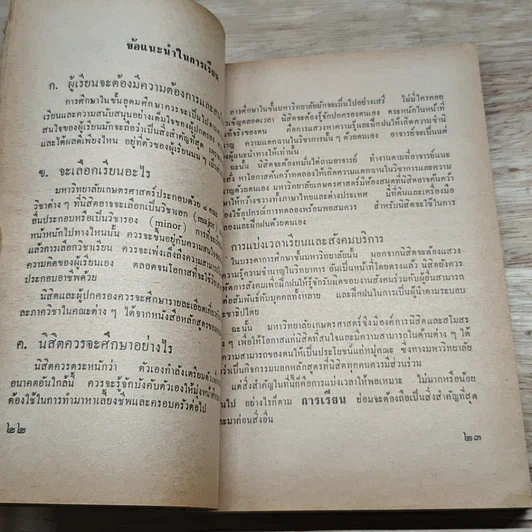 ข้อแนะนำในการเรียน
ก. ผู้เรียนจะต้องมีความต้องการและ
การศึกษาในขั้นอุดมศึกษาควรจะเป็นไป
เรียนและความสนับสนุนอย่างเต็มใจของผู้ปกครอง
สนใจของผู้เรียนมักจะถือว่าเป็นสิ่งสำคัญที่สุด
และได้ผลดีเพียงไหน อยู่ที่ตัวของผู้เรียนนน ๆ
ข. จะเลือกเรียนอะไร
มหาวิทยาลัยเกษตรศาสตร์ประกอบด้วย ๘
วิชาต่าง ๆ ที่นิสิตอาจจะเลือกเป็นวิชาเอก (major)
อื่นประกอบหรือเป็นวิชารอง (minor) การที่
หนักหนักไปทางไหนนั้น ควรจะขึ้นอยู่กับความสนใจ
แล้วการเลือกวิชาเรียน ควรจะเพ่งเล็งถึงความสามารถ
ความคิดของผู้เรียนเอง ตลอดจนโอกาสที่จะใช้วิชา
ประกอบอาชีพด้วย
นิสิตและผู้ปกครองควรจะศึกษารายละเอียดเกี่ยวกับ
ละภาควิชาในคณะต่าง ๆ ได้จากหนังสือหลักสูตรของ
ค. นิสิตควรจะศึกษาอย่างไร
นิสิตควรตระหนักว่า ตัวเองกำลังเตรียมตัว
อนาคตอันใกล้นี้ ควรจะรู้จักบังคับตัวเองให้มุ่งหน้า
ต้องใช้ในการทำมาหาเลี้ยงชีพและครอบครัวต่อไป
๒๒
การศึกษาในขั้นมหาวิทยาลัยมักจะเป็นไปอย่างเสรี ไม่มีใครคอย
เข็ญตลอดเวลา นิสิตจะต้องรู้จักปกครองตนเอง ควรตระหนักในหน้าที่
ของตน คือการแสวงหาความรู้และฝึกฝนให้เกิดความชำนิ
ความแตกฉานในวิชาการนั้น ๆ ด้วยตนเอง อาจารย์จะเป็นแต่
ผู้แนะนำทางให้เท่านั้น
ฉะนั้น นิสิตจะต้องหมั่นไต่ถามอาจารย์ ทำงานตามที่อาจารย์แนะ
หาโอกาสค้นคว้าทดลองให้เกิดความแตกฉานในวิชาการและความ
ด้วยตนเอง มหาวิทยาลัยเกษตรศาสตร์มีห้องสมุดที่นิสิตอาจค้นคว้า
มาก้าวขวางทั้งภาษาไทยและต่างประเทศ มีที่ดินและเครื่องมือ
อุปกรณ์การทดลองพร้อมพอสมควร สำหรับนิสิตจะใช้ในการ
และฝึกฝนด้วยตนเอง
การแบ่งเวลาเรียนและสังคมบริการ
ในบรรดาการศึกษาขั้นมหาวิทยาลัยนั้น นอกจากนิสิตจะต้องแสวง
ความรู้ความชำนาญในวิชาการ อันเป็นหน้าที่โดยตรงแล้ว นิสิตยังควร
เวลาให้แก่สังคมเพื่อฝึกฝนให้รู้จักรับผิดชอบงานสังคมร่วมกับผู้อื่นสามารถ
สัมพันธ์กับบุคคลทั้งหลาย และฝึกฝนในการเป็นผู้นำตามระบอบ
ไตย
ฉะนั้น มหาวิทยาลัยเกษตรศาสตร์จึงมีองค์การนิสิตและสโมสร
ๆ เพื่อให้โอกาสแก่นิสิตที่สนใจและมีความสามารถในด้านต่าง ๆ ได้
ความสามารถของตนให้เป็นประโยชน์แก่หมู่คณะ ซึ่งทางมหาวิทยาลัย
เป็นกิจกรรมนอกหลักสูตรที่นิสิตทุกคนควรมีส่วนร่วม
แต่สิ่งสำคัญในที่นี้ก็คือการแบ่งเวลาให้พอเหมาะ ไม่มากหรือน้อย
ไป อย่างไรก็ตาม การเรียน ย่อมจะต้องถือเป็นสิ่งสำคัญที่สุด
มาก่อนสิ่งอื่น
๒๓